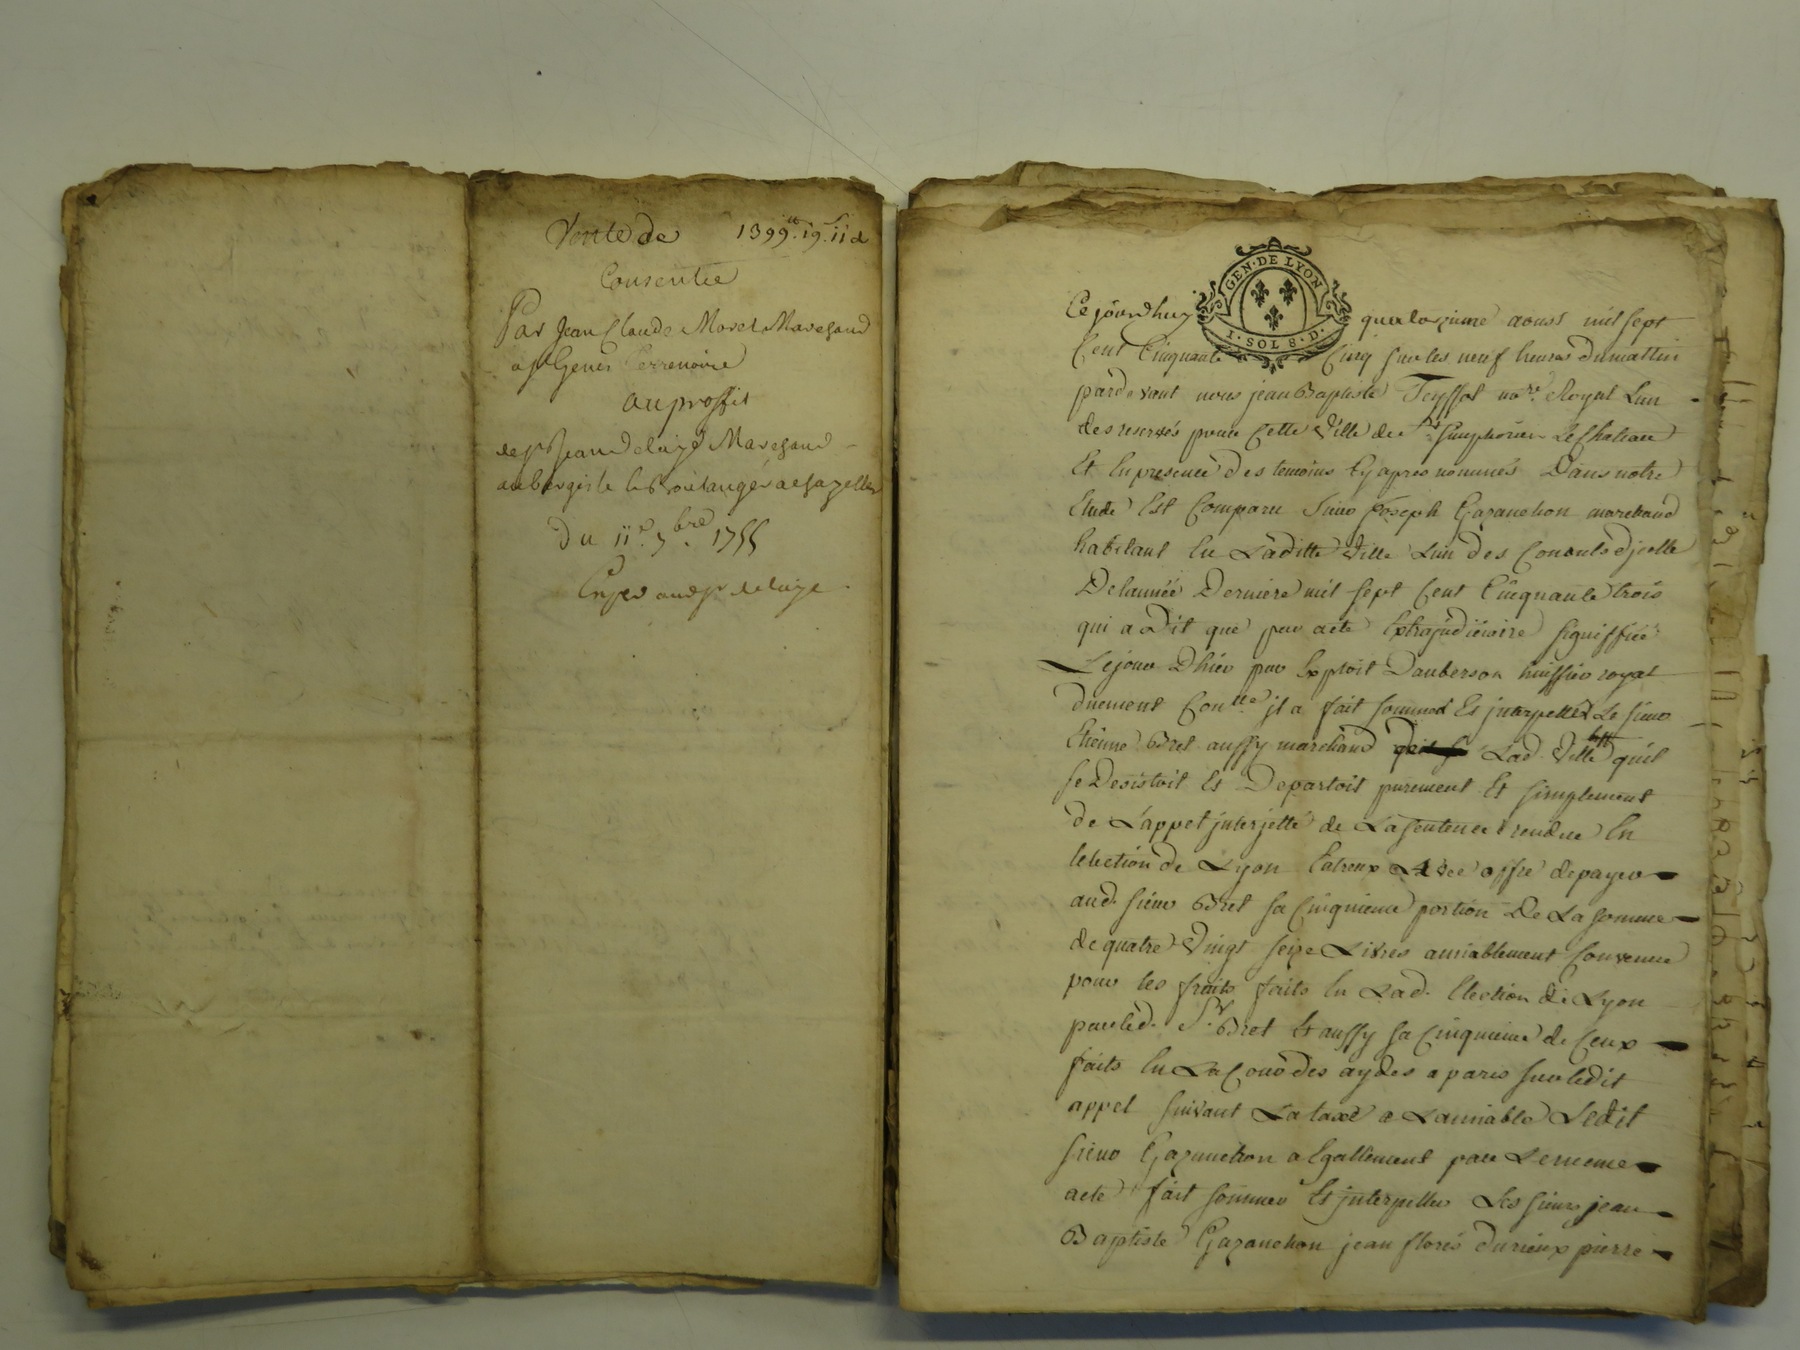 Vente de 1399.tt 19.s 11 d
Consentie
Par Jean Claude Morel Marchand
a st Genis Terrenoire
au proffit
de sr Jean delaye Marchand
aubergiste & Boulanger a chazelles
du 11e 7bre 1755
Exped au sr delaye.
GEN. DE LYON
1. SOL 8. D.
Cejourdhuy quatorzieme aoust mil sept
Cent Cinquante Cinq sur les neuf heures du mattin
pardevant nous jean Baptiste Teyssot nore. Royal Lun
des reservés pour Cette Ville de St Simphorien Le Chateau
Et En presence des temoins Cy apres nommés Dans notre
Etude Est Comparu Sieur Joseph Gazanchon marchand
habitant En Laditte Ville Lun des Consuls djcelle
De lannée Derniere mil sept Cent Cinquante trois
qui a Dit que par acte Extrajudiciaire signiffié
Le jour Dhier par Exploit Dauberson huissier royal
duement Conttle. jl a fait sommer Et jnterpeller Le sieur
Etienne Bret aussy marchand Lad. Ville quil
se Desistoit Et Departoit purement Et simplement
de Lappel jnterjetté de La sentence rendue En
lelection de Lyon Entreux Avec offre de payer
aud. sieur Bret sa Cinquieme portion De La somme
de quatre Vingt seize Livres amiablement Convenue
pour les fraits faits En Lad. Election de Lyon
par led. Sr. Bret Et aussy sa Cinquieme de Ceux
faits En La Cour des aydes a paris sur ledit
appel suivant La taxe a Lamiable Ledit
sieur Gazanchon a Egallement par Le meme
acte fait sommer Et jnterpeller Les sieurs jean
Baptiste Gazanchon jean floris durieux pierre